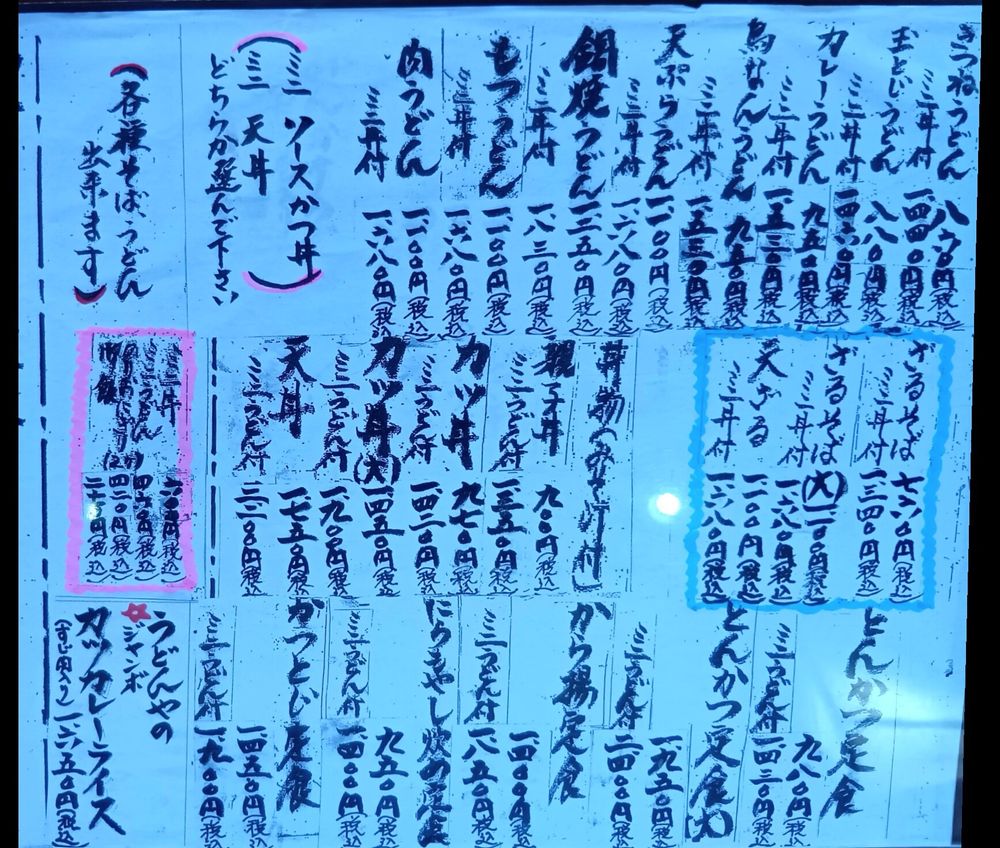 きつねうどん 八六〇円(税込)
ミニ丼付 一、四四〇円(税込)
玉とじうどん 八八〇円(税込)
ミニ丼付 一、四六〇円(税込)
カレーうどん 九五〇円(税込)
ミニ丼付 一、五三〇円(税込)
鳥なんうどん 九五〇円(税込)
ミニ丼付 一、五三〇円(税込)
天ぷらうどん 一、一〇〇円(税込)
ミニ丼付 一、六八〇円(税込)
鍋焼うどん 一、二五〇円(税込)
ミニ丼付 一、八三〇円(税込)
もつうどん 一、一〇〇円(税込)
ミニ丼付 一、六八〇円(税込)
肉うどん 一、一〇〇円(税込)
ミニ丼付 一、六八〇円(税込)
(ミニ ソースかつ丼
ミニ 天丼)
どちらか選んで下さい
(各種そばうどん
出来ます)
ざるそば 七六〇円(税込)
ミニ丼付 一、三四〇円(税込)
ざるそば(大) 一、一〇〇円(税込)
ミニ丼付 一、六八〇円(税込)
天ざる 一、一〇〇円(税込)
ミニ丼付 一、六八〇円(税込)
丼物(みそ汁付)
親子丼 九〇〇円(税込)
ミニうどん付 一、三五〇円(税込)
カツ丼 九七〇円(税込)
ミニうどん付 一、四二〇円(税込)
カツ丼(大) 一、四五〇円(税込)
ミニうどん付 一、九〇〇円(税込)
天丼 一、七五〇円(税込)
ミニうどん付 二、二〇〇円(税込)
ミニ丼 六〇〇円(税込)
ミニうどん 四六〇円(税込)
のりおにぎり 四二〇円(税込)
御飯 二一〇円(税込)
とんかつ定食 九八〇円(税込)
ミニうどん付 一、四三〇円(税込)
とんかつ定食(大) 一、九五〇円(税込)
ミニうどん付 二、四〇〇円(税込)
から揚定食 一、四〇〇円(税込)
ミニうどん付 一、八五〇円(税込)
にらもやし炒め定食 九五〇円(税込)
ミニうどん付 一、四〇〇円(税込)
かつとじ定食 一、四五〇円(税込)
ミニうどん付 一、九〇〇円(税込)
うどんやの
ジャンボ
カツカレーライス
(すじ肉入り) 一、六五〇円(税込)